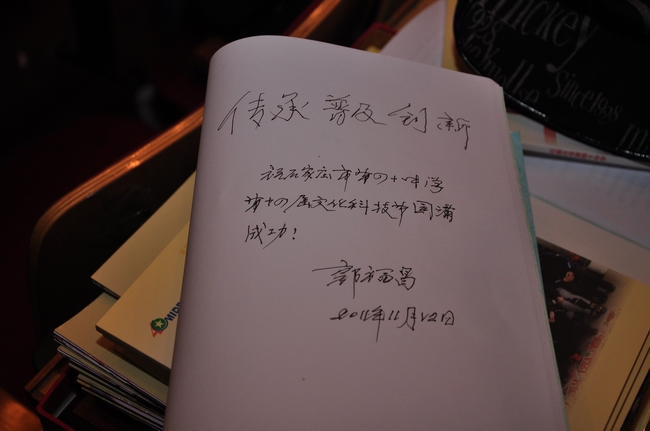 传承 普及 创新
祝石家庄市第四十中学
第十四届文化科技节圆满
成功!
郭福昌
2011年11月12日
Mickey
Since1928